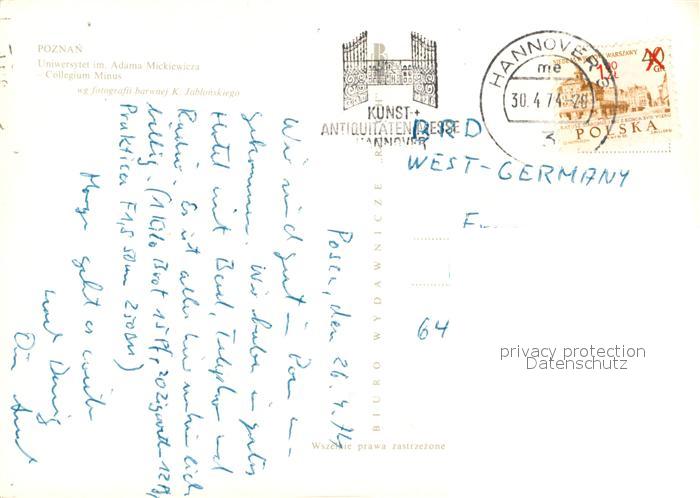 POZNAŃ
Uniwersytet im. Adama Mickiewicza
– Collegium Minus
wg fotografii barwnej K. Jabłońskiego
KUNST-+
ANTIQUITÄTEN-MESSE
HANNOVER
HANNOVER
me
30.4.74-20
3
WARSZAWY
40
GR
1,50
ZŁ
POLSKA
BRD
WEST-GERMANY
64
privacy protection
Datenschutz
BIURO WYDAWNICZE R
Wszelkie prawa zastrzeżone
Posen, den 26.4.74
Wir sind gut in Posen an-
gekommen. Wir haben ein gutes
Hotel mit Bad, Telephon und
Radio. Es ist alles hier
billig. (1 Kilo Brot 15 Pf, 20 Zigaretten 12 Pf,
Praktica F1,8 50mm 250 DM)
Morgen geht es weiter
und
Dein